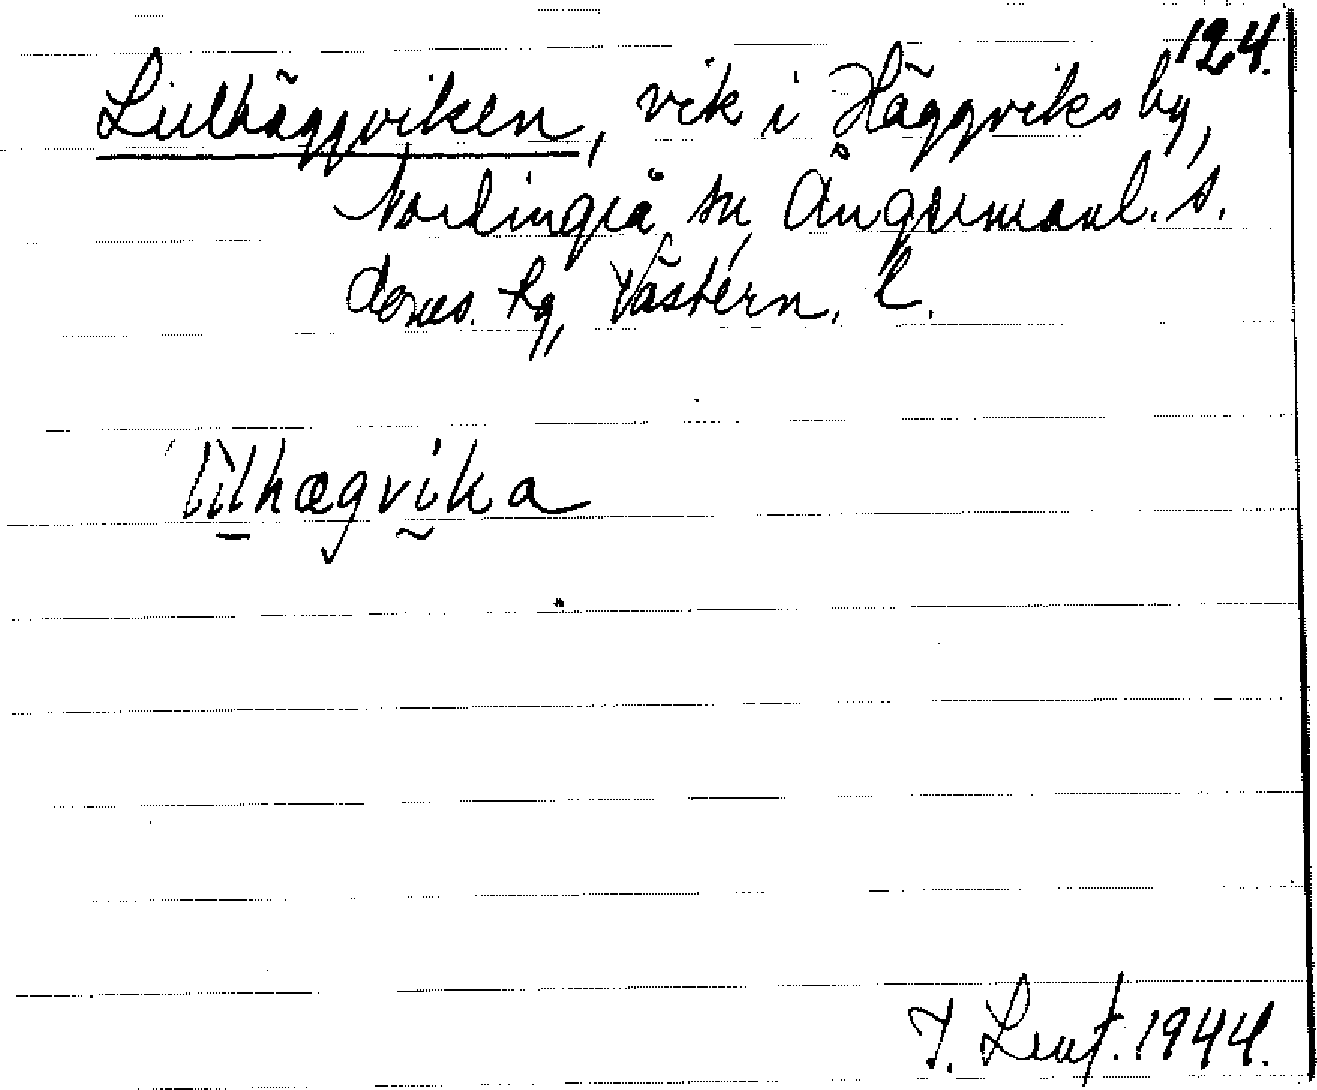 124.
Lillhäggviken, vik i Häggviks by,
Nordingrå sn, Ångermanl. s.
doms. tg, Västern. l.
lilhægvika
1944.